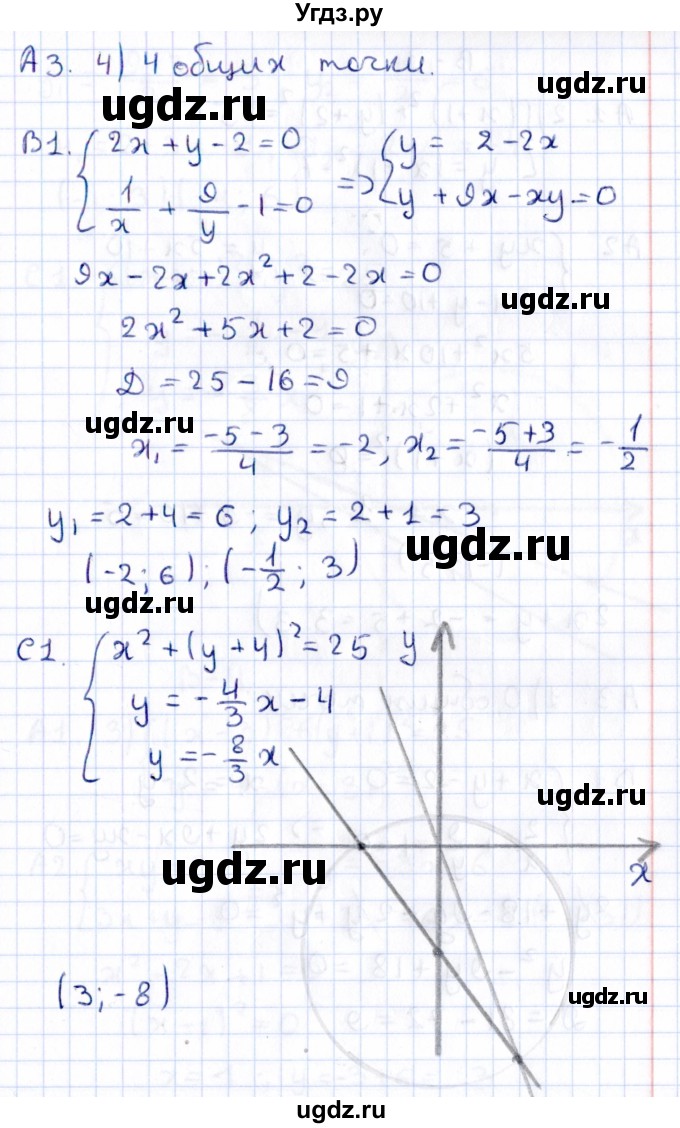 Угдз.ру
А3. 4) 4 общих точки.
ugdz.ru
ugdz.ru
В1. { 2x + y - 2 = 0 => { y = 2 - 2x
1/x + 9/y - 1 = 0 y + 9x - xy = 0
ugdz.ru
9x - 2x + 2x² + 2 - 2x = 0
ugdz.ru
2x² + 5x + 2 = 0
Д = 25 - 16 = 9
ugdz.ru
x₁ = (-5 - 3)/4 = -2; x₂ = (-5 + 3)/4 = -1/2
y₁ = 2 + 4 = 6; y₂ = 2 + 1 = 3
ugdz.ru
(-2; 6); (-1/2; 3)
ugdz.ru
С1. { x² + (y + 4)² = 25
y = -4/3 x - 4
y = -8/3 x
y
ugdz.ru
ugdz.ru
x
(3; -8)
ugdz.ru
ugdz.ru